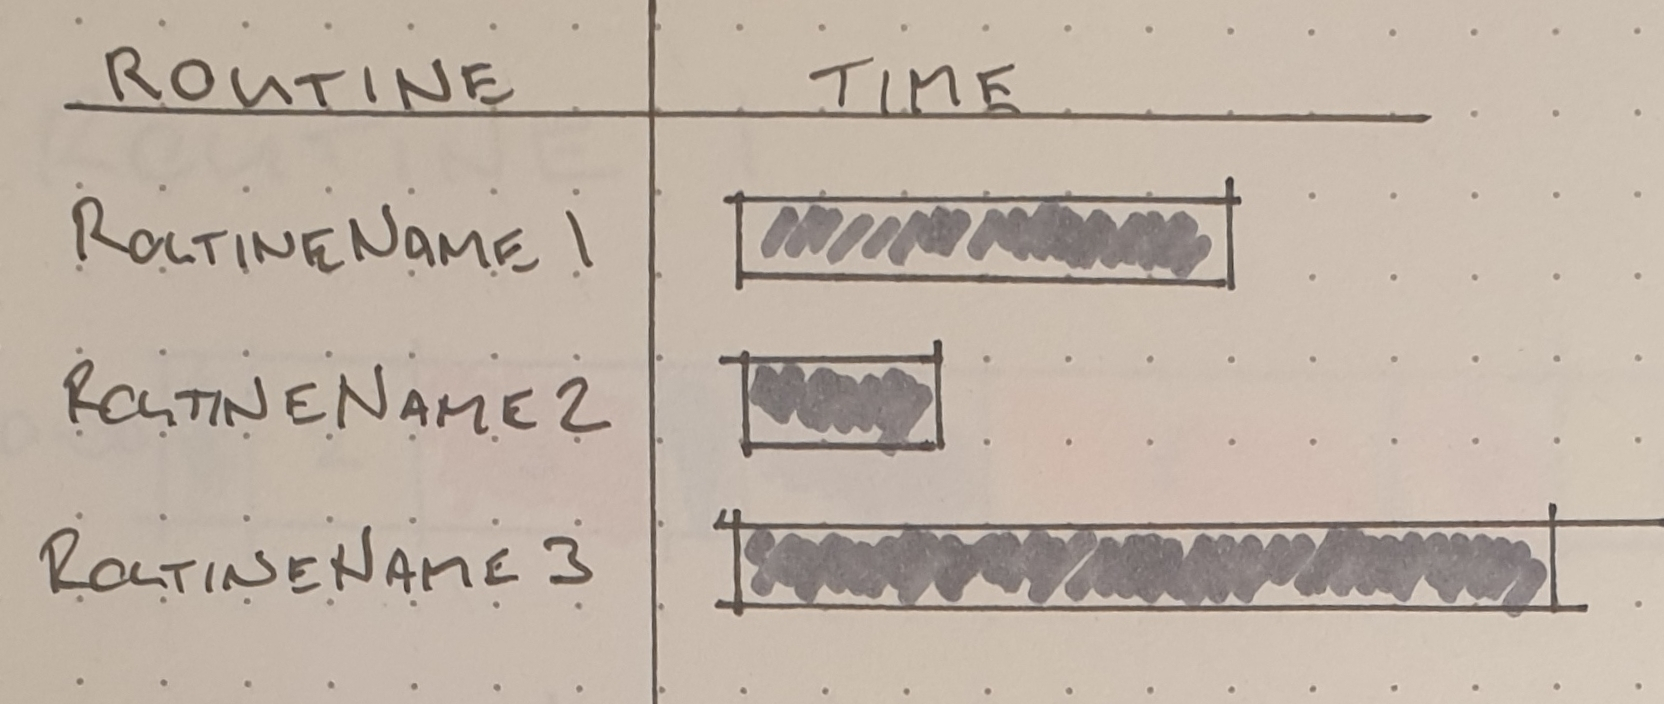 ROUTINE TIME
ROUTINENAME 1
ROUTINENAME 2
ROUTINENAME 3